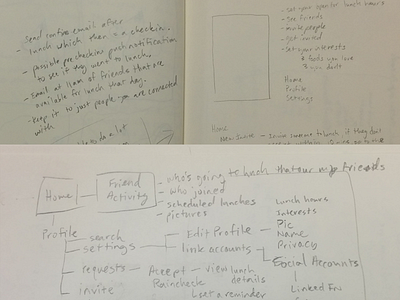 Send intro email after
lunch which then is a checkin.
- possible pre checkin push notification
to see if they went to lunch.
- Email at 11am of friends that are
available for lunch that day.
- keep it to just people you are connected
with
to do a lot
- set your open for lunch hours
- see friends
- make people
- get invited
- set your interests
Home
Profile
Settings
Home
someone to lunch, if they don't
Home
Friend
Activity
- who's going to lunch that our my Friends
- who joined
- scheduled lunches
- pictures
Profile
search
settings
Edit Profile
link accounts
Lunch hours
Interests
Pic
Name
Privacy
Social Accounts
Linked In
requests
Accept
Raincheck
view lunch
details
set a reminder
invite